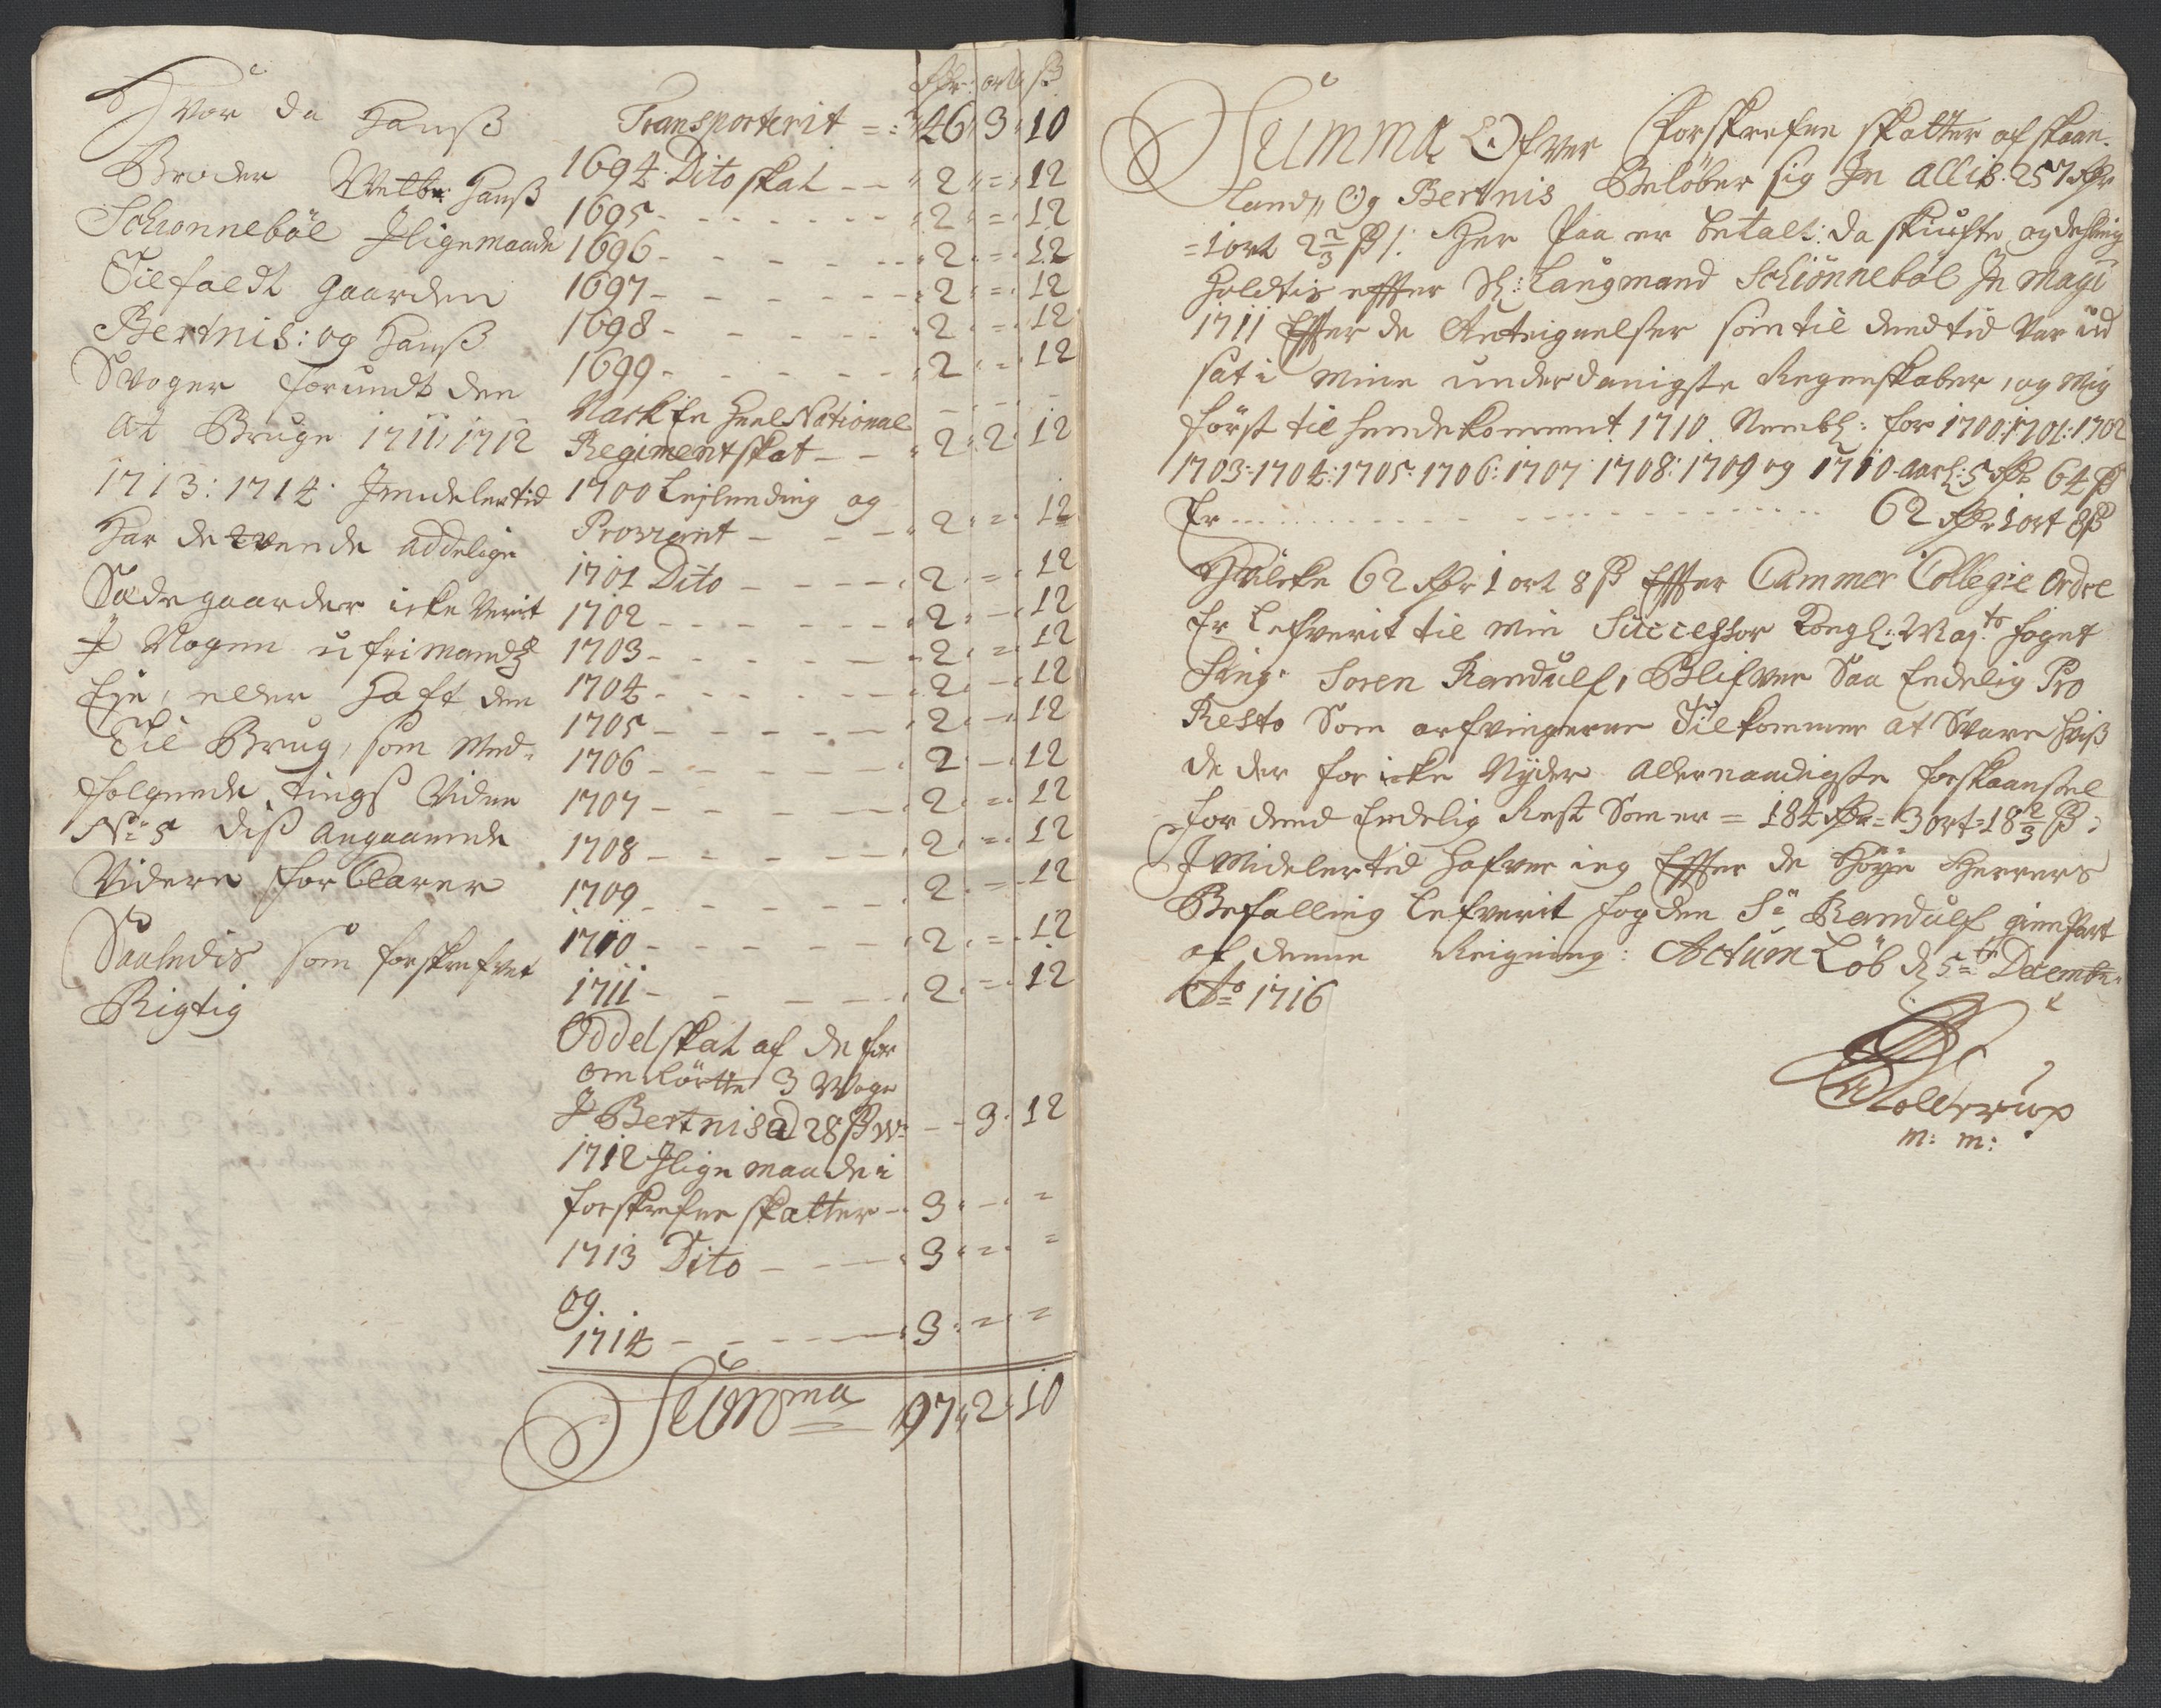 Hvor da Hanß
Broder Welb: Hanß
Schonnebøl Jligemaade
Tilfaldt Gaarden
Bertnis: og Hanß
Svoger forundt den
at Bruge 1711, 1712
1713: 1714: Jmidlertid
Har de tvende addelige
Sædegaarder icke Verit
J Nogen ufrimands
Eje, eller Haft den
Til Brug, som Med-
følgende Tings Vidne
No 5 diß angaaende
Videre forklarer
Saaledis som forskrefvet
Rigtig
Rdr: ort ß
Transporterit =: 46: 3: 10
1694 Dito skat - - 2 = 12
1695 - - - 2 = 12
1696 - - - 2 = 12
1697 - - - 2 = 12
1698 - - - 2 = 12
1699 - - - 2 = 12
Nock En Heel National
Regiment skat - - 2: 2: 12
1700 Lejlending og
Proviant - - - 2 = 12
1701 Dito - - - 2 = 12
1702 - - - 2 - 12
1703 - - - 2 = 12
1704 - - - 2 - 12
1705 - - - 2 - 12
1706 - - - 2 - 12
1707 - - - 2 = 12
1708 - - - 2 = 12
1709 - - - 2 = 12
1710 - - - 2 = 12
1711 - - - 2 = 12
Oddel skat af de for
om rörtte 3 Woge
J Bertnis ad 28 ß W: - - 3: 12
1712 Jlige maade i
forskrefne skatter - 3 - =
1713 Dito - - - 3 = =
og
1714 - - - 3 = =
Summa 97: 2: 10
Summa Ofver forskrefne skatter af skaan-
land, Og Bertnis Beløber sig Jn allis 257 Rdr
= 1 ort 2 2/3 ß /: Her Paa er betalt: da skiufte og dehling
Holdtis effter Sl: Laugmand Schiønnebøl Jn Maji
1711 Effter de Antegnelser som til dend tid Var ud
sat i mine underdanigste Regenskaber, og mig
først til hende komment 1710 Nembl: for 1700: 1701: 1702
1703: 1704: 1705: 1706: 1707 1708: 1709 og 1710 aarl: 5 Rdr 64 ß
Er - - - 62 Rdr 1 ort 8 ß
Hvilcke 62 Rdr 1 ort 8 ß Effter Cammer Collegie Ordre
Er Lefverit til min Successor Kongl: Maj:ts foget
Sing: Soren Randulf, Blifver Saa Endelig Pro
Resto Som arfvingerne Tilkommer at Svare hviß
de der for icke Nyder allernaadigste forskaansel
for dend Endelig Rest Som er = 184 Rdr = 3 ort = 18 2/3 ß:
J Midlertid hafver ieg Effter de Høye Herrers
Befalling Lefverit fogden Sr Randulf gienPart
af denne Reigning: Actum Löb d 5te Decembr:
Ao 1716
Tollerup
m: m: